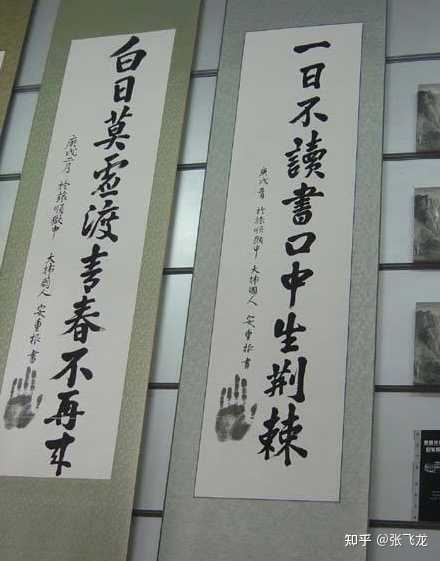 一日不讀書口中生荊棘
庚戌 於旅順獄中 大韓國人 安重根 書
白日莫虛渡青春不再來
庚戌 月 於旅順獄中 大韓國人 安重根 書
知乎 @张飞龙